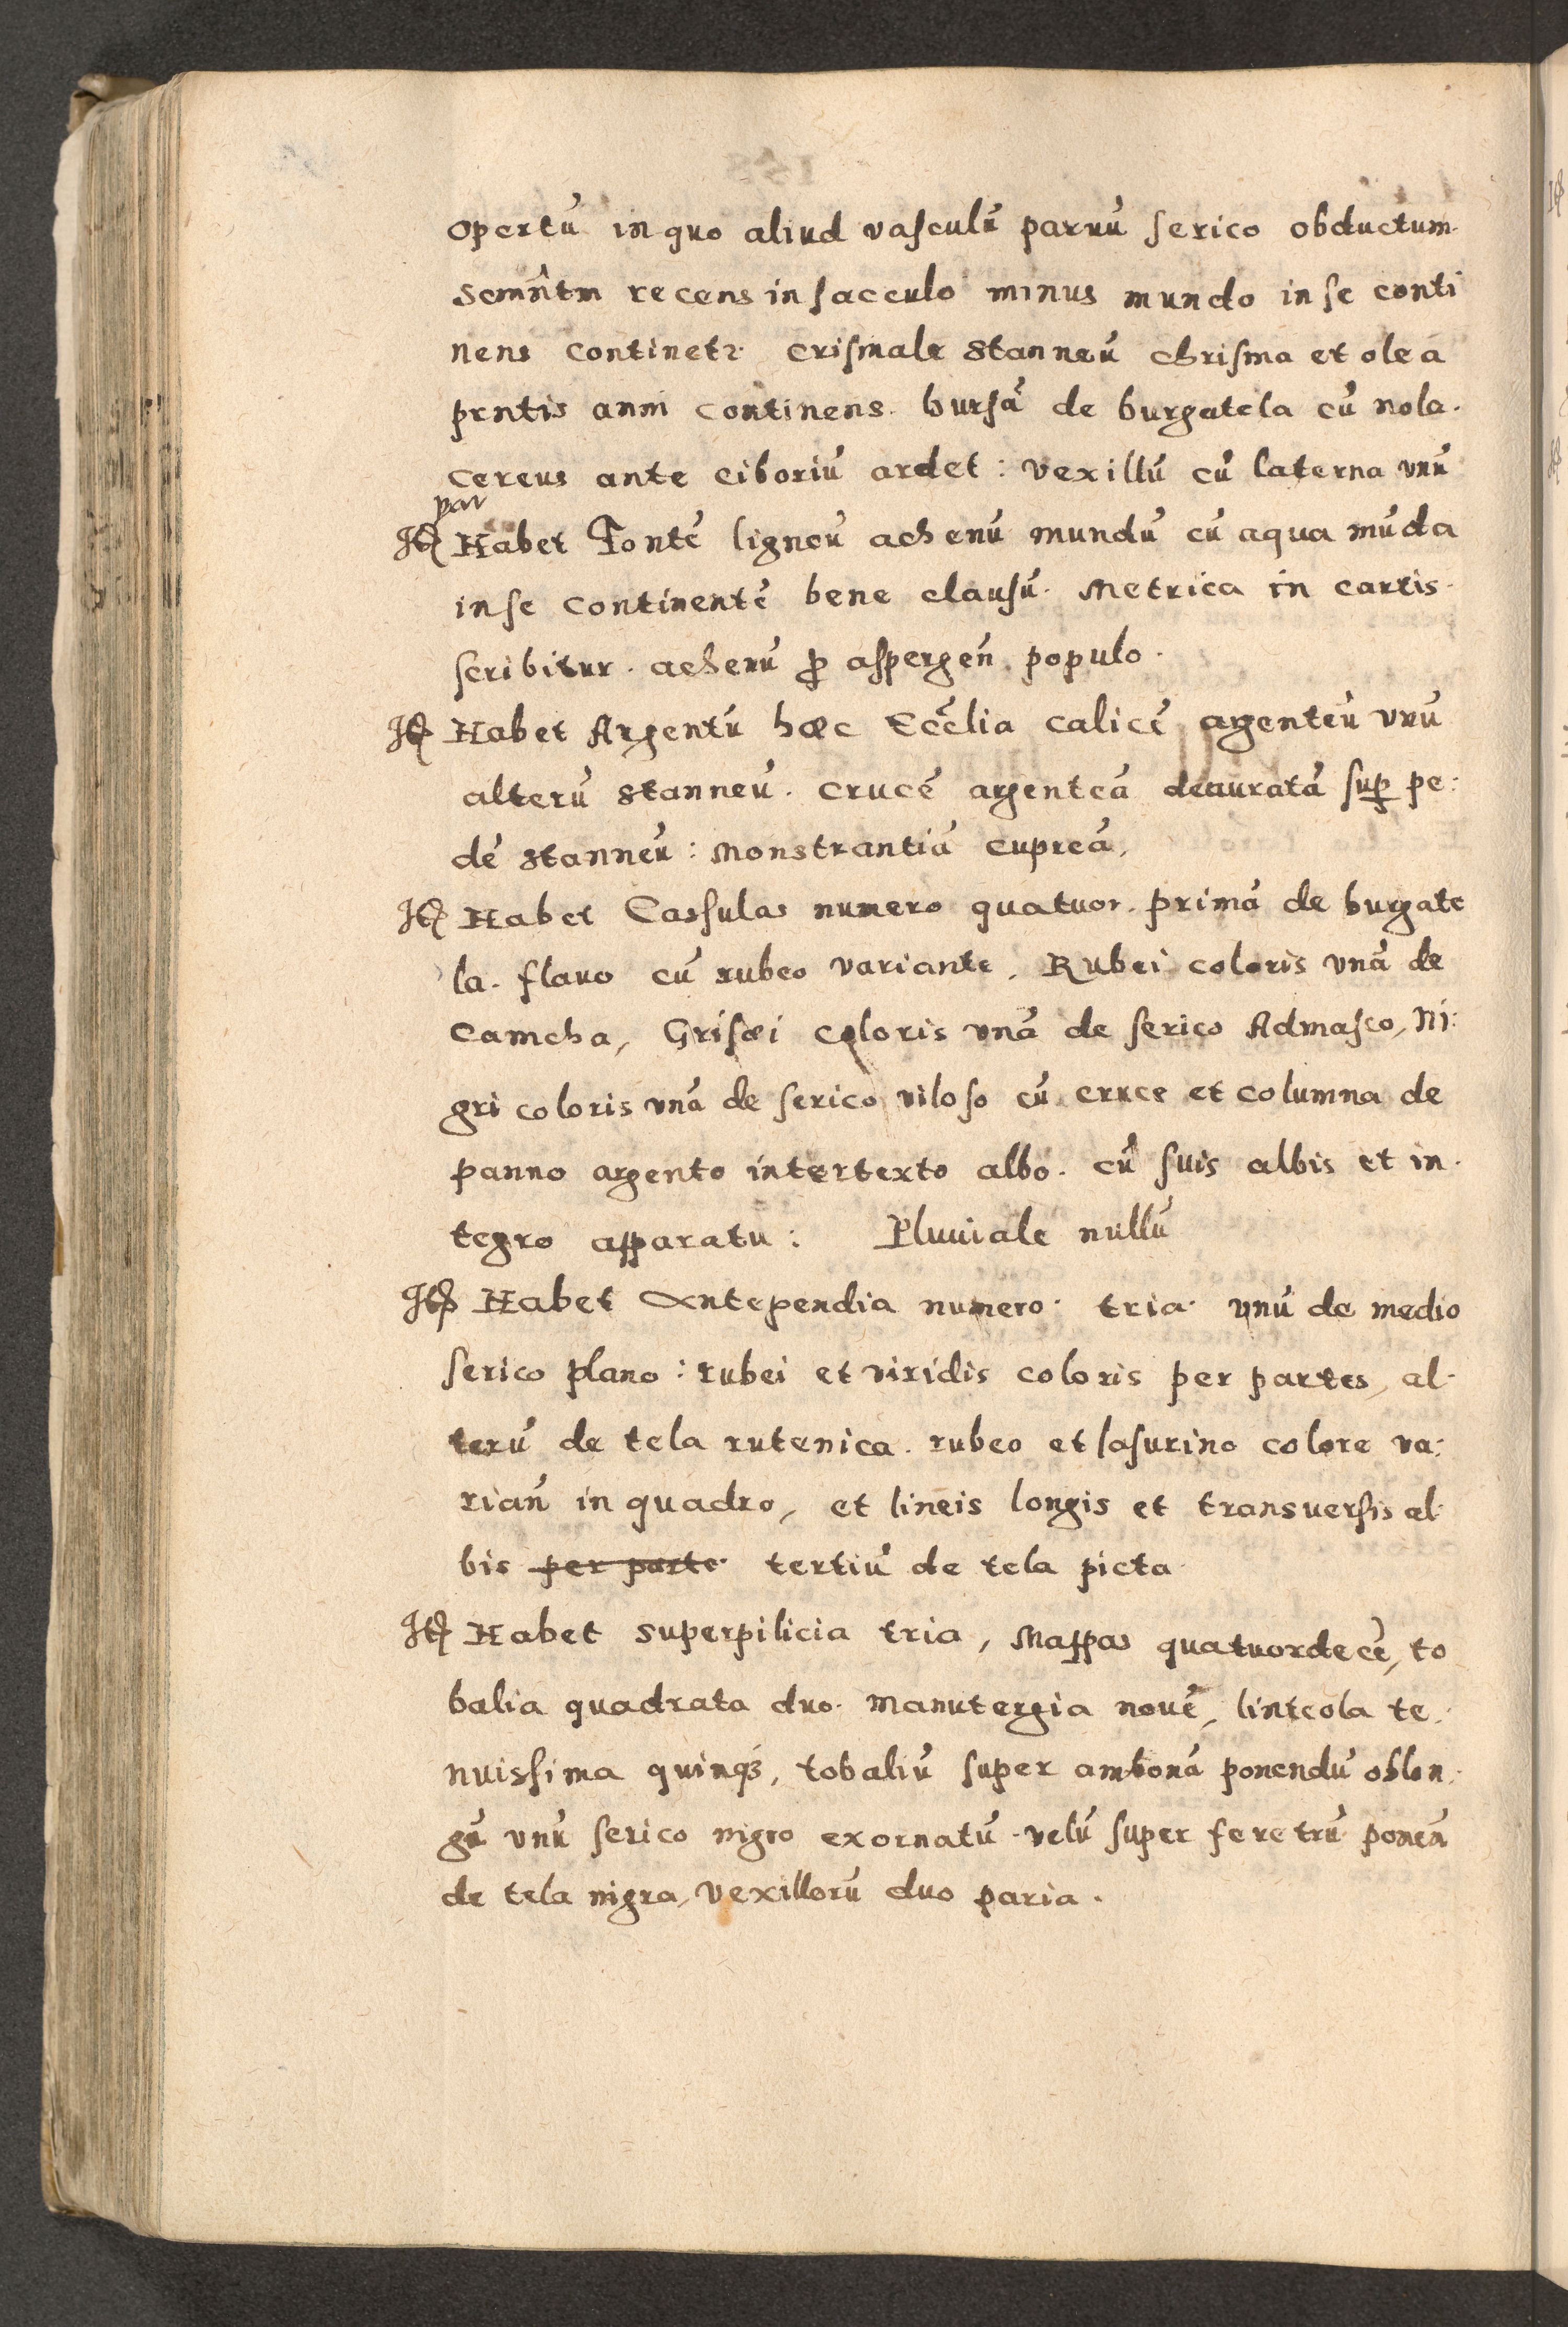 opertū in quo aliud vasculū paruū serico obductum
Scmn̄tm recens in sacculo minus mundo in se conti
nens continetr crismale stanneū chrisma et olea
pn̄tis anni continens. bursā de burgatela cū nola.
Cereus ante ciboriū ardet : vexillū cū laterna unū
par
Itē Habet Fontē ligneū achenū mundū cū aqua mūda
in se continentē bene clausū. Metrica in cartis
scribitur. achenū p̱ aspergen̄ populo.
Itē Habet Argentū hæc Eccl̄ia calicē argenteū vnū
alterū stanneū. Crucē argenteā deauratā sup̱ pe:
dē stanneū : Monstrantiā cupreā,
Itē Habet Casulas numero quatuor. primā de burgate
la. flauo cū rubeo variante, Rubei coloris vnā de
Camcha, Grisæi coloris vnā de serico Admasco, Ni:
gri coloris vnā de serico viloso cū cruce et columna de
panno argento intertexto albo. cū suis albis et in.
tegro apparatu : Pluuiale nullū
Itē Habet Antependia numero. tria. vnū de medio
serico plano : rubei et viridis coloris per partes, al.
terū de tela rutenica. rubeo et lasurino colore va:
rian̄ in quadro, et lineis longis et transuersis al
bis per parte tertiū de tela picta
Itē Habet superpilicia tria, Mappas quatuordecē, to
balia quadrata duo. Manutergia nouē, linteola te.
nuissima quinqꝫ, tobaliū super ambonā ponendū oblon.
gū vnū serico nigro exornatū. velū super feretrū ponen̄
de tela nigra, Vexillorū duo paria.